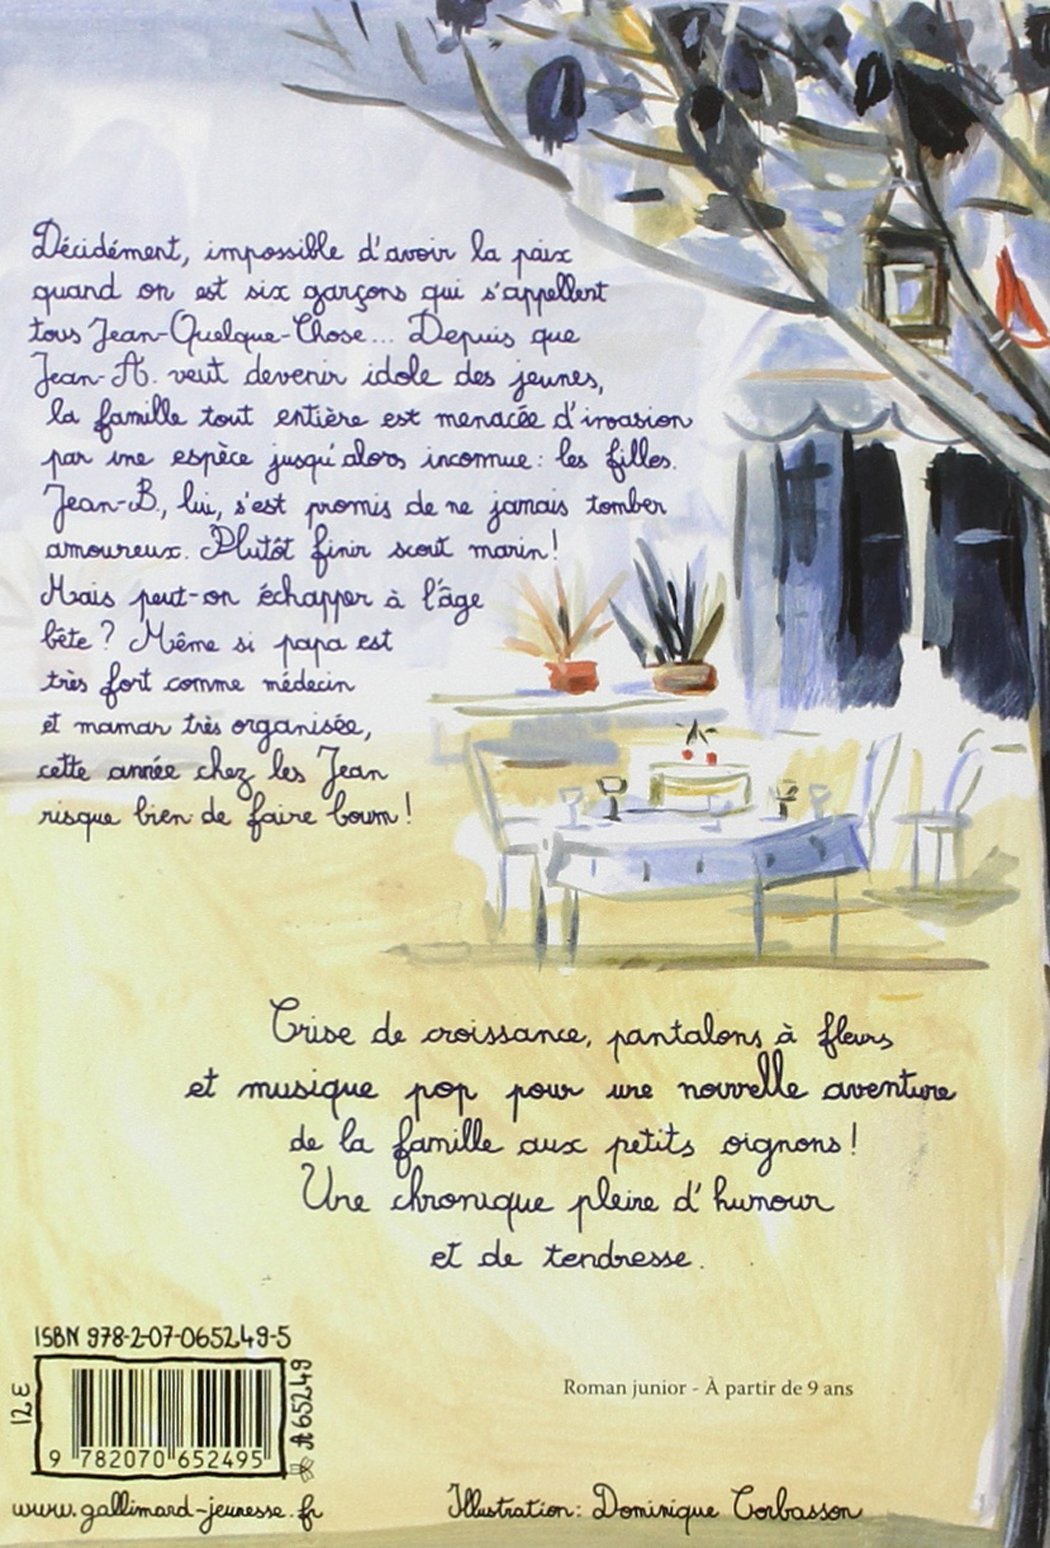 Décidément, impossible d'avoir la paix
quand on est six garçons qui s'appellent
tous Jean-Quelque-Chose... Depuis que
Jean-A. veut devenir idole des jeunes,
la famille tout entière est menacée d'invasion
par une espèce jusqu'alors inconnue : les filles.
Jean-B., lui, s'est promis de ne jamais tomber
amoureux. Plutôt finir scout marin !
Mais peut-on échapper à l'âge
bête ? Même si papa est
très fort comme médecin
et maman très organisée,
cette année chez les Jean
risque bien de faire boum !
Crise de croissance, pantalons à fleurs
et musique pop pour une nouvelle aventure
de la famille aux petits oignons !
Une chronique pleine d'humour
et de tendresse.
ISBN 978-2-07-065249-5
12 €
A 65249
9 782070 652495
Roman junior - À partir de 9 ans
www.gallimard-jeunesse.fr
Illustration : Dominique Corbasson